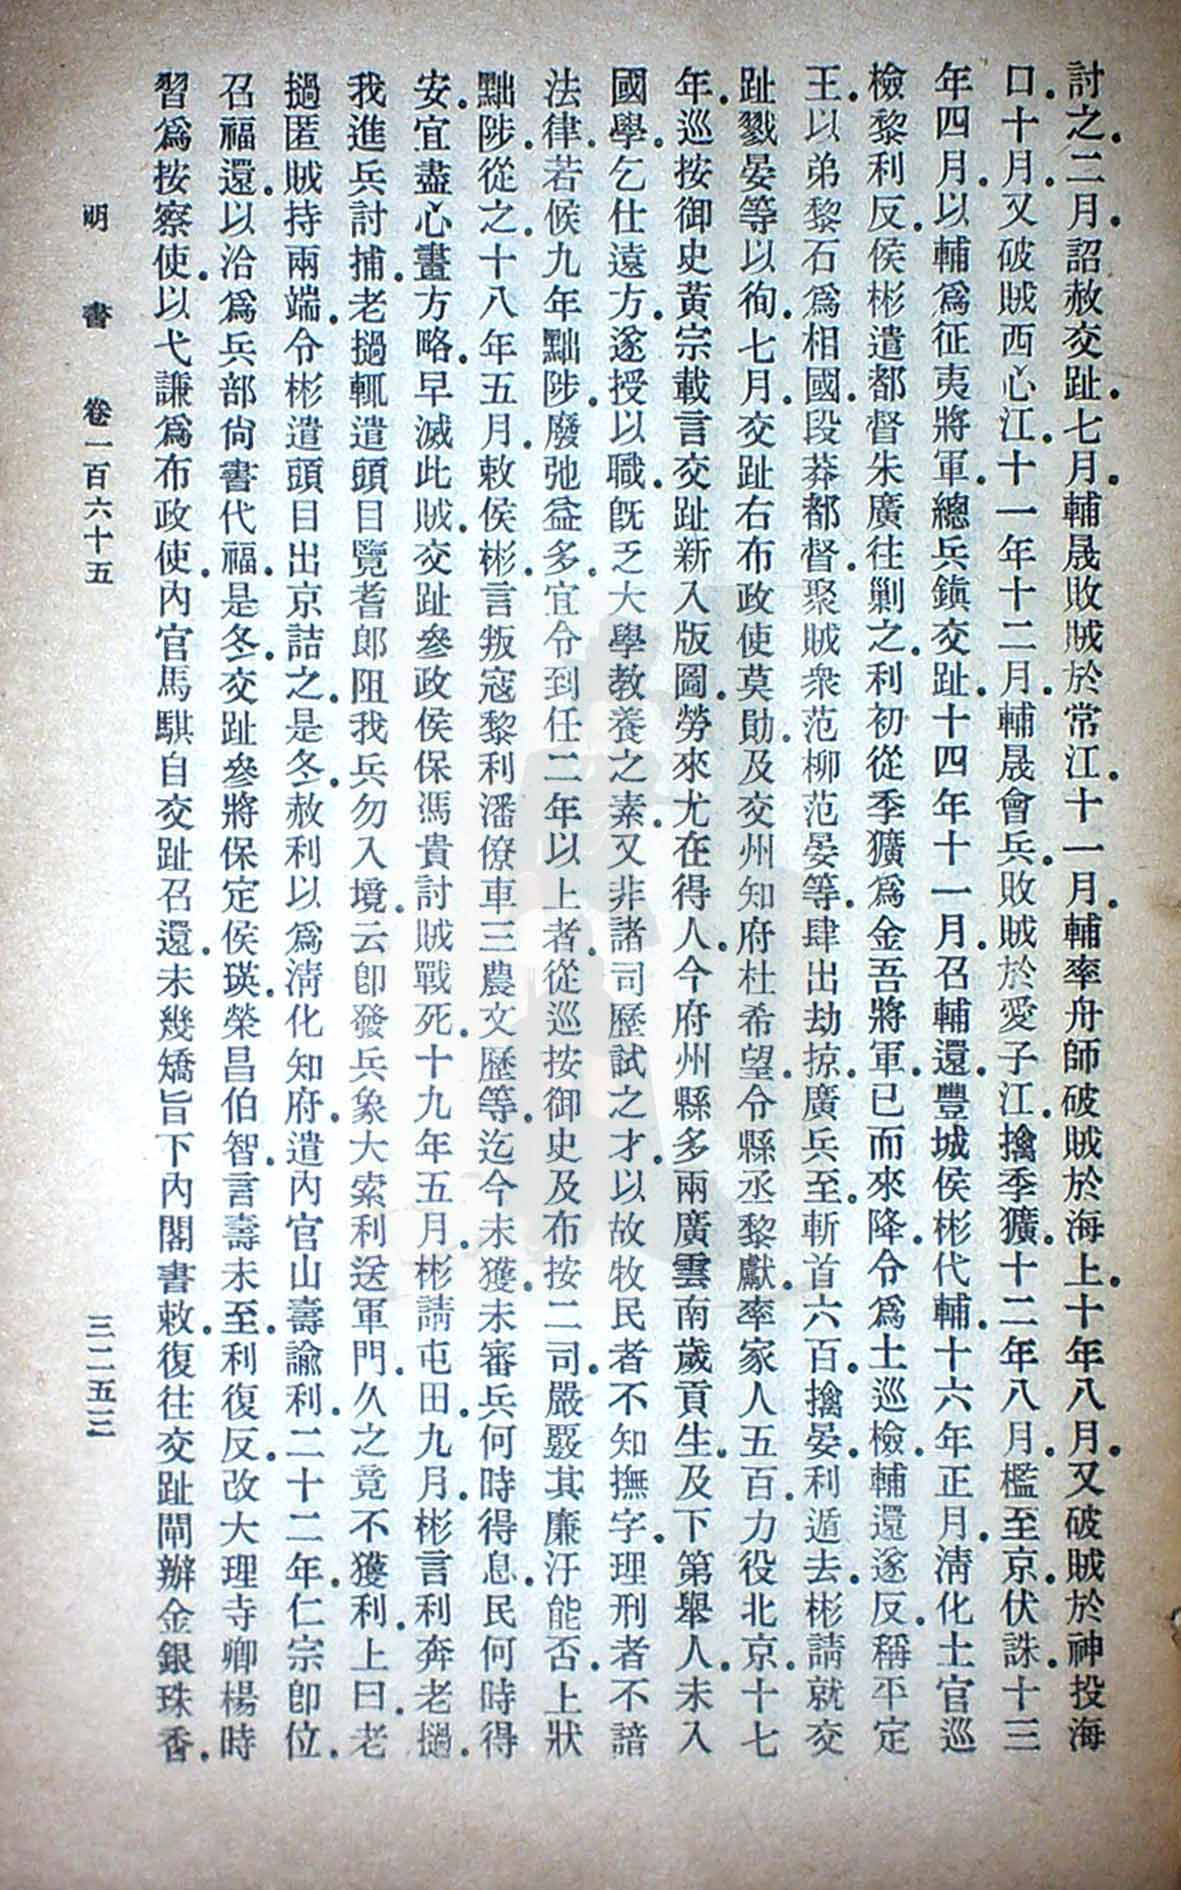 討之。二月。詔赦交趾。七月。輔晟敗賊於常江。十一月。輔率舟師破賊於海上。十年八月。又破賊於神投海
口。十月。又破賊西心江。十一年十二月。輔晟會兵。敗賊於愛子江。擒季獷。十二年八月。檻至京。伏誅。十三
年四月。以輔爲征夷將軍。總兵鎮交趾。十四年十一月。召輔還。豐城侯彬代輔。十六年正月。淸化土官巡
檢黎利反。侯彬遣都督朱廣往剿之。利初從季獷爲金吾將軍。已而來降。令爲土巡檢。輔還遂反。稱平定
王。以弟黎石爲相國。段莽都督。聚賊衆范柳范晏等。肆出劫掠。廣兵至。斬首六百。擒晏。利遁去。彬請就交
趾戮晏等以徇。七月。交趾右布政使莫勛。及交州知府杜希望。令縣丞黎獻。率家人五百。力役北京。十七
年。巡按御史黃宗載言交趾新入版圖。勞來尤在得人。今府州縣多兩廣雲南歲貢生。及下第舉人。未入
國學。乞仕遠方。遂授以職。旣乏大學敎養之素。又非諸司歷試之才。以故牧民者不知撫字。理刑者不諳
法律。若候九年黜陟。廢弛益多。宜令到任二年以上者。從巡按御史及布按二司。嚴覈其廉汙能否。上狀
黜陟。從之。十八年五月。敕侯彬。言叛寇黎利潘僚車三農文歷等。迄今未獲。未審兵何時得息。民何時得
安。宜盡心畫方略。早滅此賊。交趾參政侯保馮貴討賊戰死。十九年五月。彬請屯田。九月。彬言利奔老撾。
我進兵討捕。老撾輒遣頭目覽耆郞阻我兵勿入境。云卽發兵象大索利送軍門。久之竟不獲利。上曰。老
撾匿賊持兩端。令彬遣頭目出京詰之。是冬。赦利以爲淸化知府。遣內官山壽諭利。二十二年。仁宗卽位。
召福還。以洽爲兵部尙書代福。是冬。交趾參將保定侯瑛。榮昌伯智。言壽未至。利復反。改大理寺卿楊時
習爲按察使。以弋謙爲布政使。內官馬騏自交趾召還。未幾矯旨下內閣書敕。復往交趾閘辦金銀珠香。
明書 卷一百六十五 三二五三